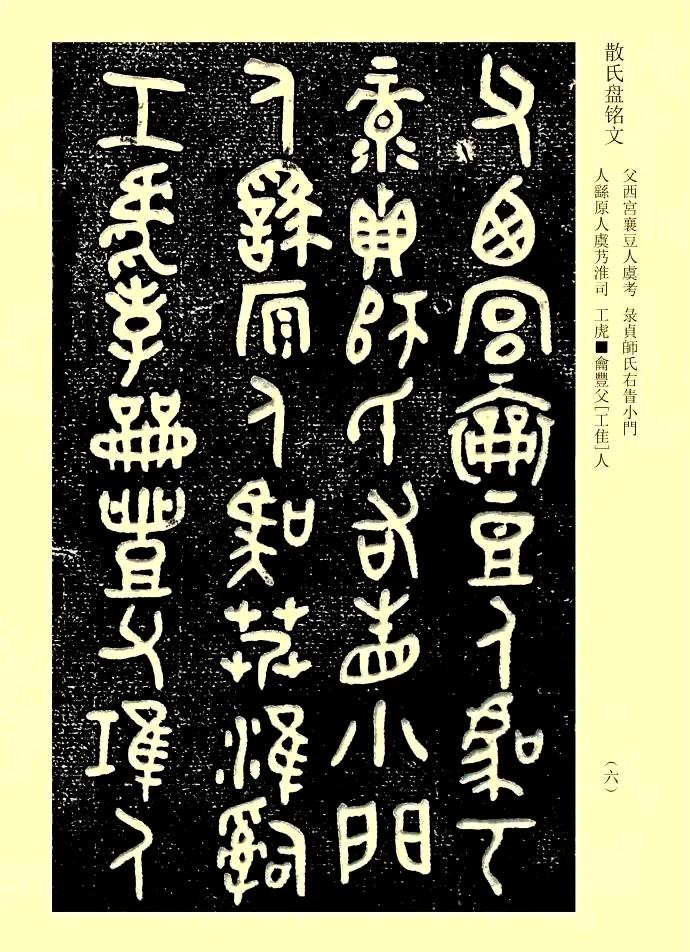 散氏盘铭文
父西宮襄豆人虞考 彔貞師氏右眚小門
人繇原人虞艿淮司 工虎■龠豐父[工隹]人
(六)